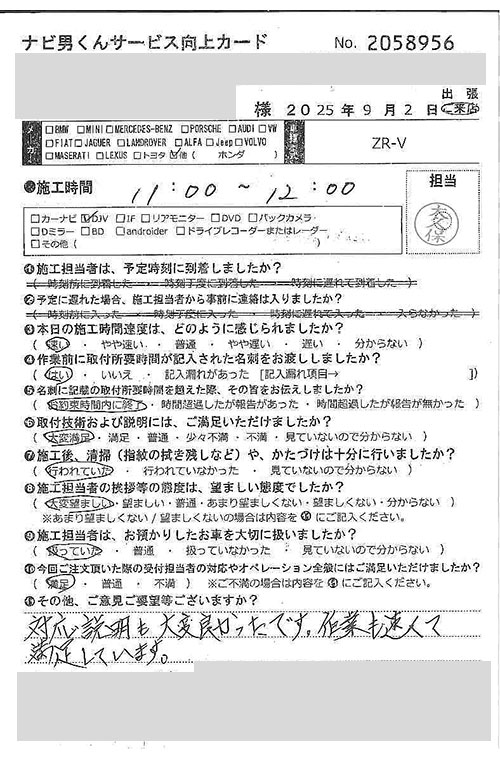 ナビ男くんサービス向上カード No. 2058956
出張
様 2025年9月2日 ご来店
□BMW □MINI □MERCEDES-BENZ □PORSCHE □AUDI □VW
□FIAT □JAGUER □LANDROVER □ALFA □Jeep □VOLVO
□MASERATI □LEXUS □トヨタ ☑他 ( ホンダ )
ZR-V
●施工時間 11:00 ~ 12:00
担当
大久保
□カーナビ ☑DJV □IF □リアモニター □DVD □バックカメラ
□Dミラー □BD □androider □ドライブレコーダーまたはレーダー
□その他 (
❶施工担当者は、予定時刻に到着しましたか?
( 時刻前に到着した ・ 時刻丁度に到着した ・ 時刻に遅れて到着した )
❷予定に遅れた場合、施工担当者から事前に連絡は入りましたか?
( 時刻前に入った ・ 時刻丁度に入った ・ 時刻に遅れて入った ・ 入らなかった )
❸本日の施工時間速度は、どのように感じられましたか?
( 速い ・ やや速い ・ 普通 ・ やや遅い ・ 遅い ・ 分からない )
❹作業前に取付所要時間が記入された名刺をお渡ししましたか?
( はい ・ いいえ ・ 記入漏れがあった [記入漏れ項目→ ])
❺名刺に記載の取付所要時間を超えた際、その旨をお伝えしましたか?
( お約束時間内に終了 ・ 時間超過したが報告があった ・ 時間超過したが報告が無かった )
❻取付技術および説明には、ご満足いただけましたか?
( 大変満足 ・ 満足 ・ 普通 ・ 少々不満 ・ 不満 ・ 見ていないので分からない )
❼施工後、清掃(指紋の拭き残しなど)や、かたづけは十分に行いましたか?
( 行われていた ・ 行われていなかった ・ 見ていないので分からない )
❽施工担当者の挨拶等の態度は、望ましい態度でしたか?
( 大変望ましい ・ 望ましい ・ 普通 ・ あまり望ましくない ・ 望ましくない ・ 分からない )
※あまり望ましくない/望ましくないの場合は内容を⓫にご記入ください。
❾施工担当者は、お預かりしたお車を大切に扱いましたか?
( 扱っていた ・ 普通 ・ 扱っていなかった ・ 見ていないので分からない )
❿今回ご注文頂いた際の受付担当者の対応やオペレーション全般にはご満足いただけましたか?
( 満足 ・ 普通 ・ 不満 ) ※ご不満の場合は内容を⓫にご記入ください。
⓫その他、ご意見ご要望等ございますか?
対応、説明も大変良かったです。作業も速くて
満足しています。